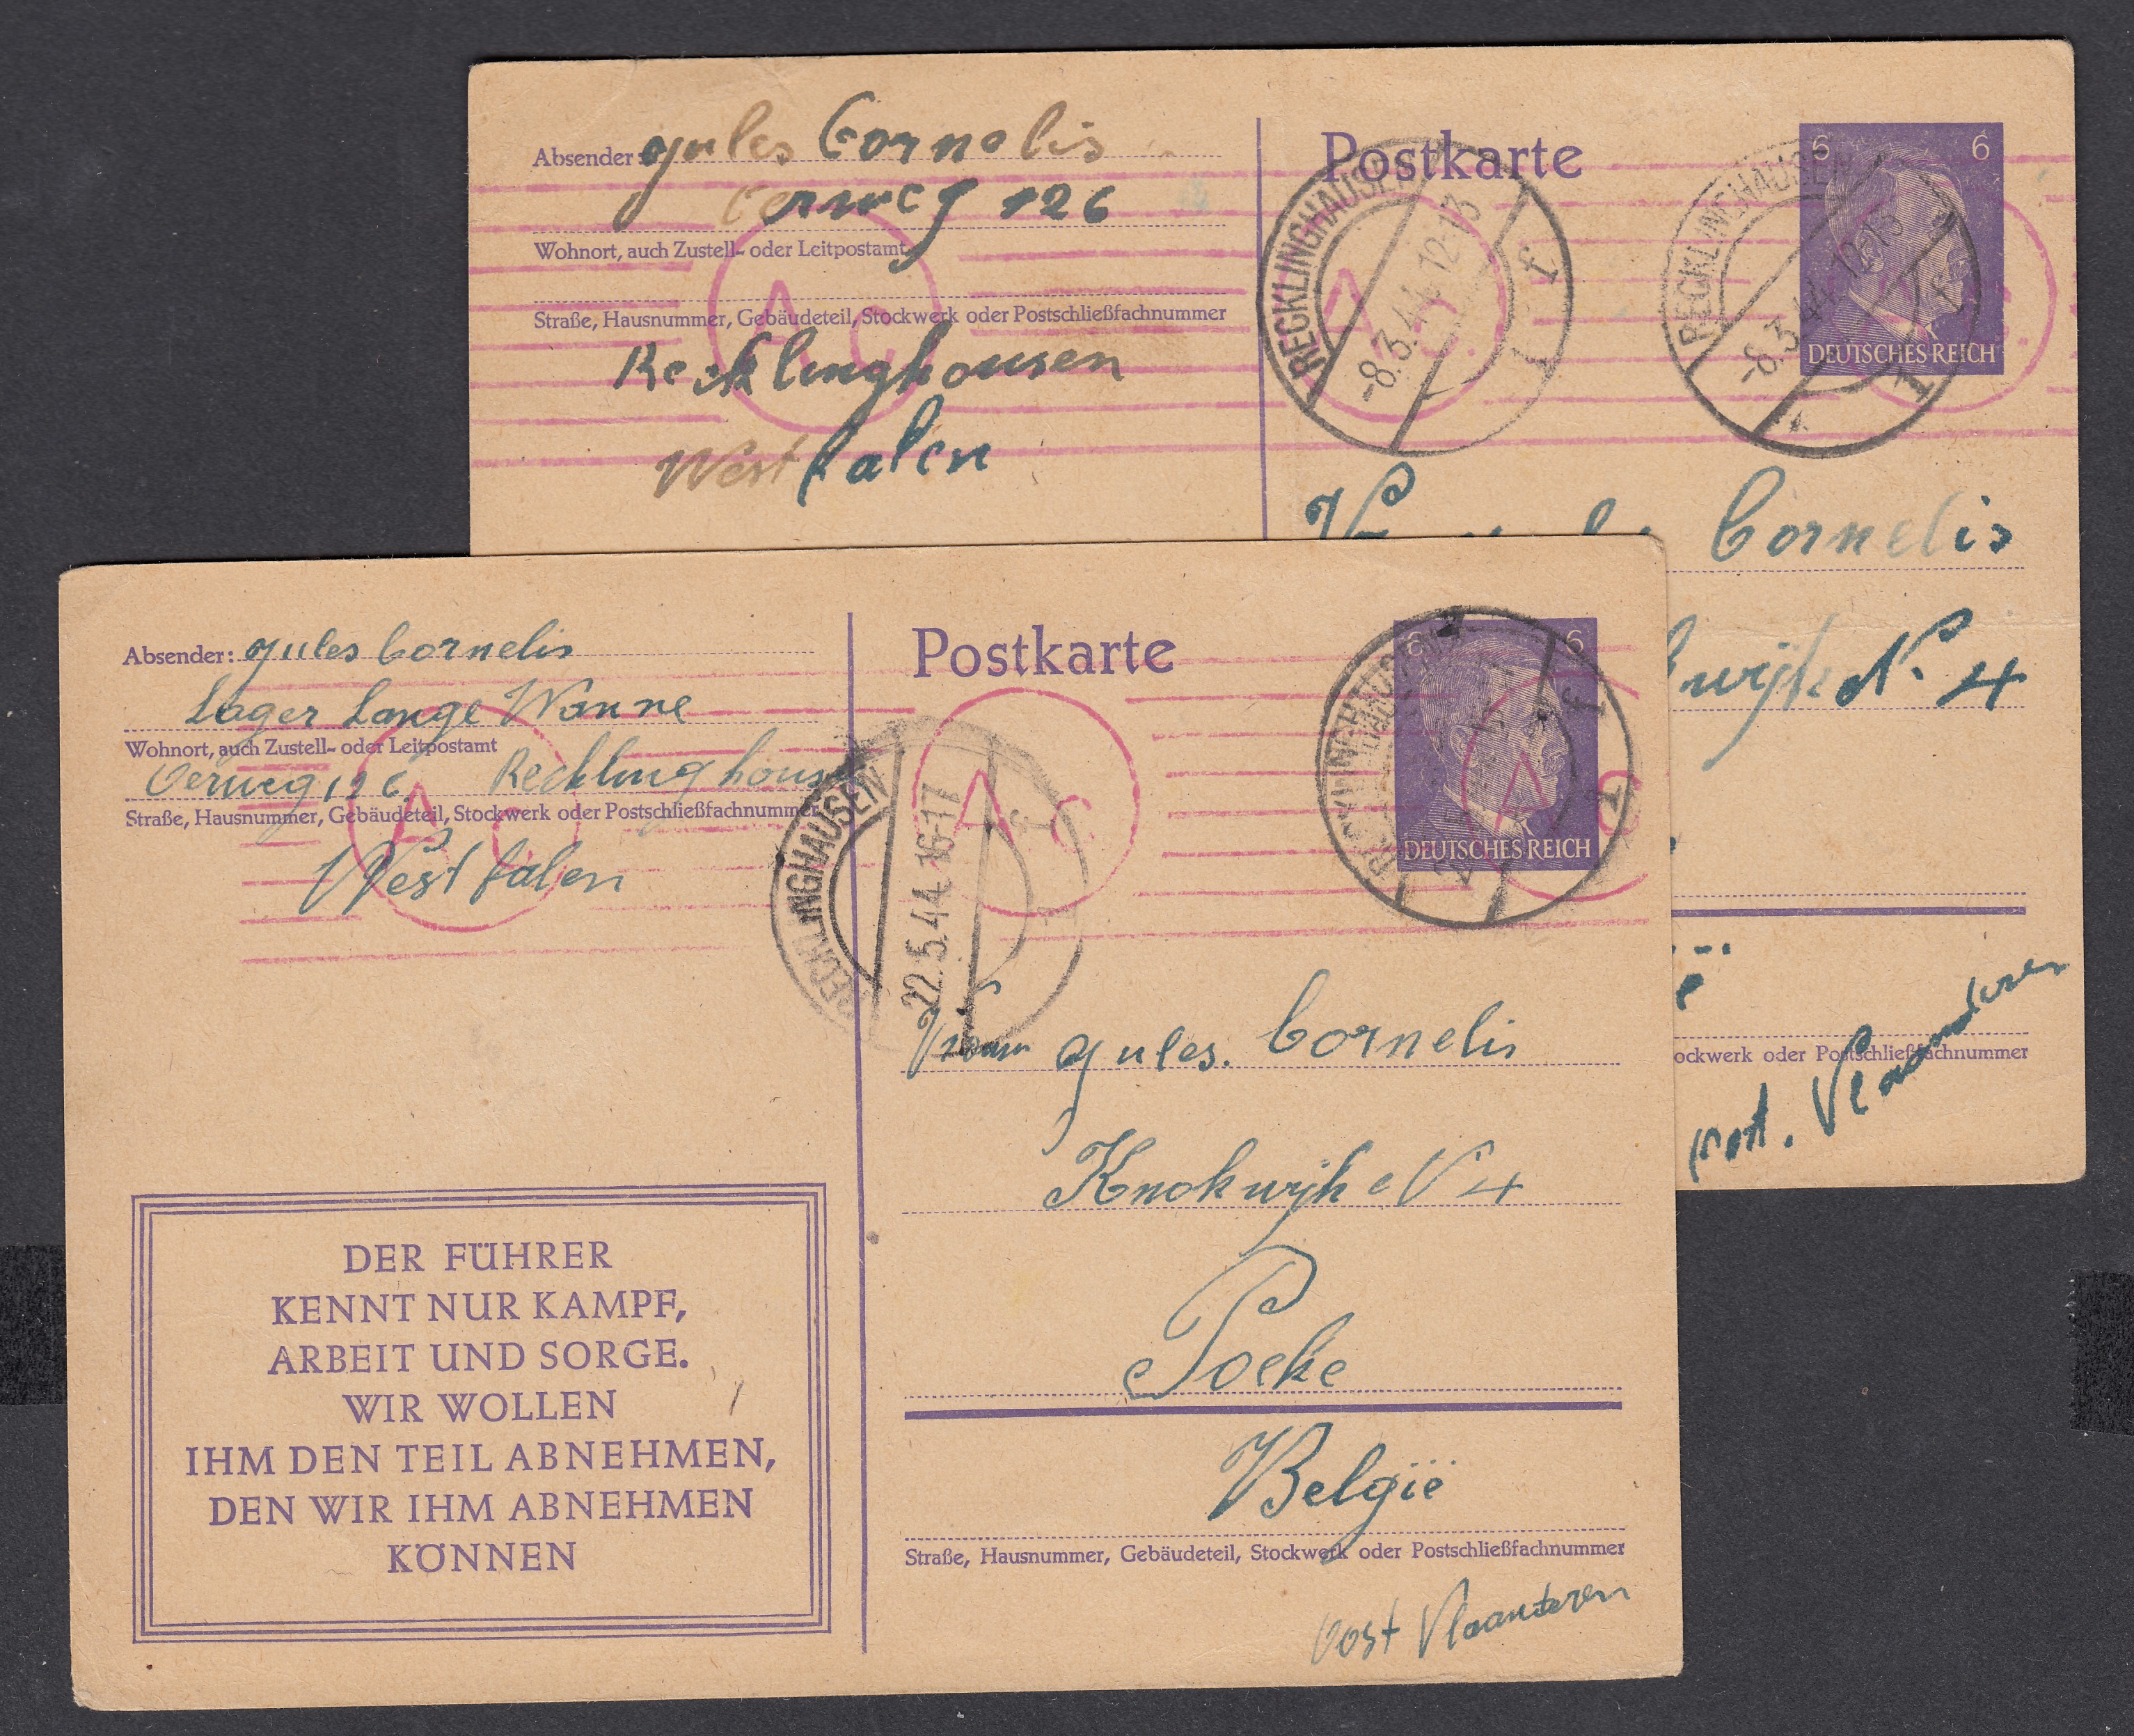 Absender: Jules Cornelis
Oerweg 126
Wohnort, auch Zustell- oder Leitpostamt
Straße, Hausnummer, Gebäudeteil, Stockwerk oder Postschließfachnummer
Recklinghousen
Westfalen
Postkarte
6 6
DEUTSCHES REICH
RECKLINGHAUSEN
-8.3.44.12-13
f
1
RECKLINGHAUSEN
-8.3.44.12-13
f
1
Ac
Ac
Cornelis
wijk N. 4
ë
ockwerk oder Postschließfachnummer
oost. Vlaanderen
Absender: Jules Cornelis
Lager Lange Wanne
Wohnort, auch Zustell- oder Leitpostamt
Oerweg 126 Recklinghouse
Straße, Hausnummer, Gebäudeteil, Stockwerk oder Postschließfachnummer
Westfalen
Postkarte
6 6
DEUTSCHES REICH
RECKLINGHAUSEN
22.5.44.16-17
RECKLINGHAUSEN
f
1
Ac
Ac
Ac
Jules. Cornelis
Knokwijk N 4
Poeke
Belgïë
Straße, Hausnummer, Gebäudeteil, Stockwerk oder Postschließfachnummer
Oost Vlaanderen
DER FÜHRER
KENNT NUR KAMPF,
ARBEIT UND SORGE.
WIR WOLLEN
IHM DEN TEIL ABNEHMEN,
DEN WIR IHM ABNEHMEN
KÖNNEN